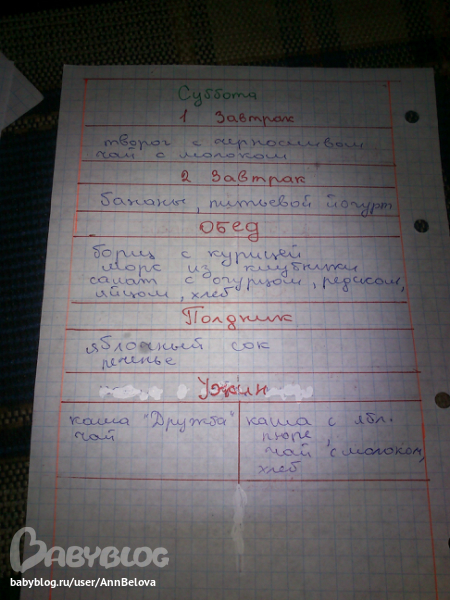 Суббота
1 Завтрак
творог с черносливом
чай с молоком
2 Завтрак
бананы, питьевой йогурт
Обед
борщ с курицей
морс из клубники
салат с огурцом, редисом,
яйцом, хлеб
Полдник
яблочный сок
печенье
Ужин
каша "Дружба"
чай
каша с ябл.
пюре,
чай с молоком,
хлеб
BABYBLOG
babyblog.ru/user/AnnBelova